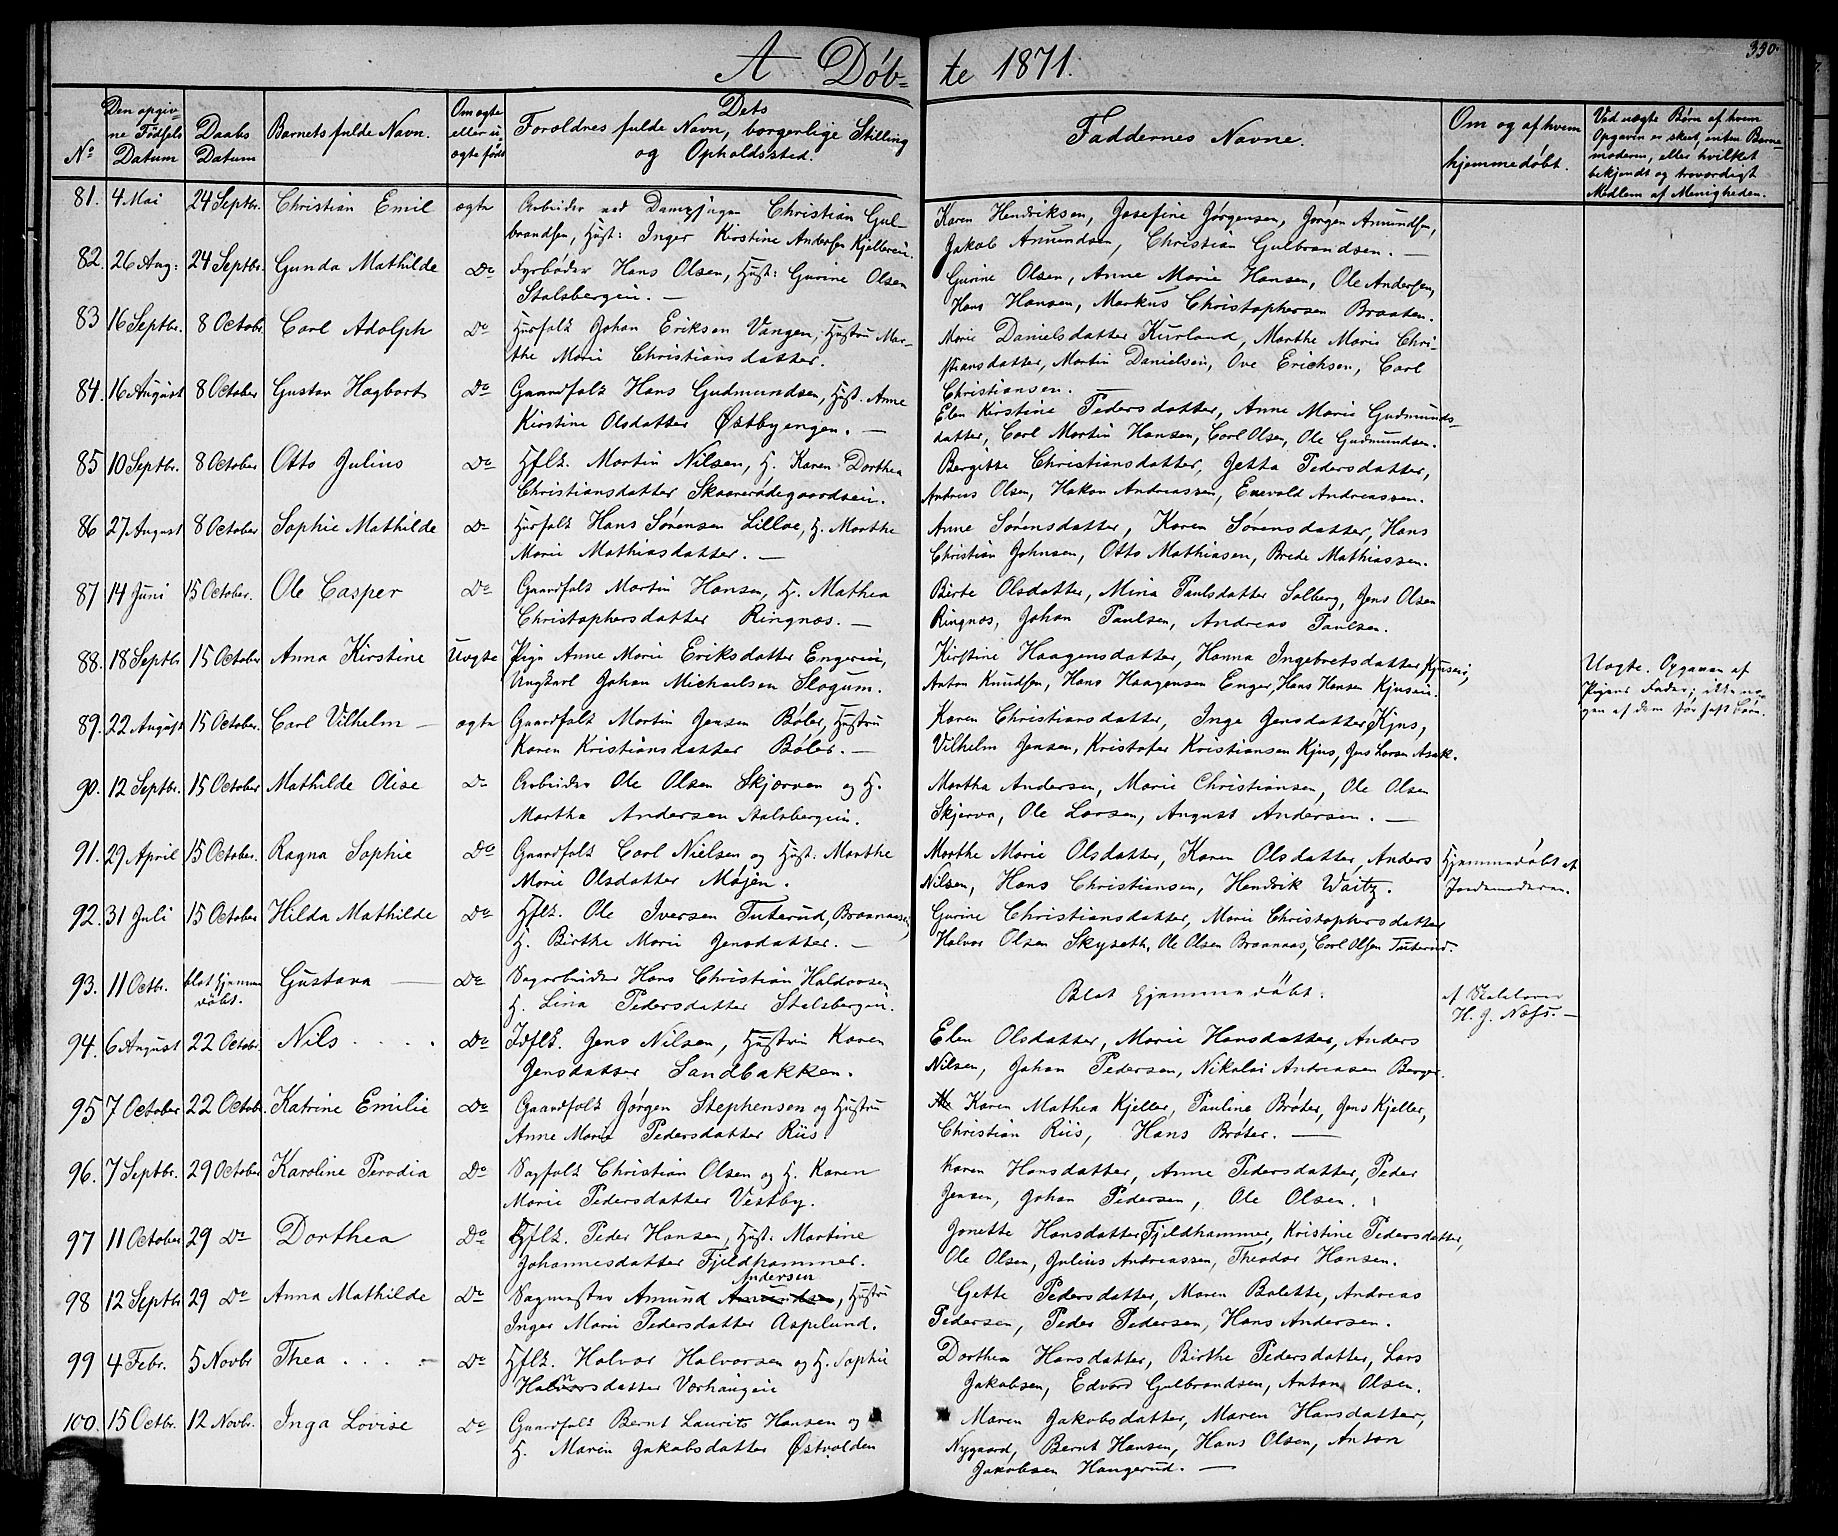 A Døb= te 1871.
390.
No
Den opgiv-
ne Fødsels
Datum
Daabs
Datum
Barnets fulde Navn.
Om ægte
eller u-
ægte født
Dets
Foroldres fulde Navn, borgerlige Stilling
og Opholdssted.
Faddernes Navne.
Om og af hvem
hjemmedøbt.
Ved uægte Børn af hvem
Opgaven er skeet, enten Barne-
moderen, eller hvilket
bekjendt og troværdigt
Medlem af Menigheden.
81. 4 Mai 24 Septbr. Christian Emil ægte Arbeider ved Dampsagen Christian Gul-
brandsen, Hust: Inger Kirstine Andersen Kjellerein.
Karen Hendriksen, Josefine Jørgensen, Jørgen Amundsen,
Jakob Amundsen, Christian Gulbrandsen. —
82. 26 Aug: 24 Septbr. Gunda Mathilde Do Fyrbøder Hans Olsen, Hust: Gurine Olsen
Stalsbergein. —
Gurine Olsen, Anne Marie Hansen, Ole Andersen,
Hans Hansen, Markus Christophersen Braaten.
83 16 Septbr. 8 Octobr Carl Adolph Do Husfolk Johan Eriksen Vangen, Hustru Mar-
the Marie Christiansdatter.
Marie Danielsdatter Kurland, Marthe Marie Chri-
stiansdatter, Martin Danielsen, Ove Erichsen, Carl
Christiansen.
84. 16 August 8 October Gustav Hagbart Do Gaardfolk Hans Gudmundsen, Hust. Anne
Kirstine Olsdatter Østbyengen. —
Elen Kirstine Pedersdatter, Anne Marie Gudmunds-
datter, Carl Martin Hansen, Carl Olsen, Ole Gudmundsen.
85 10 Septbr. 8 October Otto Julius Do Hflk. Martin Nilsen, H. Karen Dorthea
Christiansdatter Skaarerødegaardseie.
Bergitte Christiansdatter, Jetta Pedersdatter,
Andreas Olsen, Hakon Andreassen, Enevold Andreassen.
86 27 August 8 October Sophie Mathilde Do Husfolk Hans Sørensen Lilloe, H. Marthe
Marie Mathiasdatter. —
Anne Sørensdatter, Karen Sørensdatter, Hans
Christian Johnsen, Otto Mathiasen, Brede Mathiassen.
87 14 Juni 15 October. Ole Casper Do Gaardfolk Martin Hansen, H. Mathea
Christophersdatter Ringnæs. —
Birte Olsdatter, Mina Paulsdatter Solberg, Jens Olsen
Ringnæs, Johan Paulsen, Andreas Paulsen.
88. 18 Septbr 15 October Anna Kirstine Uægte Pige Anne Marie Eriksdatter Engereie,
Ungkarl Johan Michaelsen Slogum.
Kirstine Haagensdatter, Hanna Ingebretsdatter Kjuseie,
Anton Knudsen, Hans Haagensen Enger, Hans Hansen Kjuseie.
Uægte. Opgaven af
Pigens Fader; ikke no-
gen af dem før havt Børn.
89. 22 August 15 October. Carl Vilhelm — ægte Gaardfolk Martin Jensen Bøler, Hustru
Karen Kristiansdatter Bøler. —
Karen Christiansdatter, Inge Jensdatter Kjus,
Vilhelm Jensen, Kristofer Kristiansen Kjus, Jens Larsen Asak.
90. 12 Septbr. 15 October Mathilde Olise Do Arbeider Ole Olsen Skjærven og H.
Martha Andersen Stalsbergein.
Martha Andersen, Marie Christiansen, Ole Olsen
Skjerva, Ole Larsen, August Andersen. —
91. 29 April 15 October. Ragna Sophie Do Gaardfolk Carl Nielsen og Hust: Marthe
Marie Olsdatter Møjen.
Marthe Marie Olsdatter, Karen Olsdatter, Anders
Nilsen, Hans Christiansen, Hendrik Waitz.
Hjemmedøbt af
Jordemoderen.
92. 31 Juli 15 October Hilda Mathilde Do Hflk. Ole Iversen Tuterud, Braanaasei,
H. Birthe Marie Jensdatter. —
Gurine Christiansdatter, Marie Christophersdatter
Halvor Olsen Skyseth, Ole Olsen Braanaas, Carl Olsen Tuterud.
93. 11 Octbr. blot hjemme
døbt. Gustava — Do Sagarbeider Hans Christian Haldorsen
H. Lina Pedersdatter Stalsbergein.
Blot hjemmedøbt.
af Skolelærer
H. J. Næss. —
94. 6 August 22 Octobr. Nils . . . . Do Idflk. Jens Nilsen, Hustru Karen
Jensdatter Sandbakken.
Elen Olsdatter, Marie Hansdatter, Anders
Nilsen, Johan Pedersen, Nikolai Andreasen Berger.
95 7 October 22 Octobr. Katrine Emilie Do Gaardfolk Jørgen Stephensen og Hustru
Anne Marie Pedersdatter Riis.
Karen Mathea Kjeller, Pauline Brøter, Jens Kjeller,
Christian Riis, Hans Brøter. —
96. 7 Septbr. 29 October Karoline Perodia Do Sagfolk Christian Olsen og H. Karen
Marie Pedersdatter Vestby.
Karen Hansdatter, Anne Pedersdatter, Peder
Jensen, Johan Pedersen, Ole Olsen.
97 11 October 29 Do Dorthea Do Hflk. Peder Hansen, Hust: Martine
Johannesdatter Fjeldhammer.
Jonette Hansdatter Fjeldhammer, Kristine Pedersdatter,
Ole Olsen, Julius Andreassen, Theodor Hansen.
98 12 Septbr 29 Do Anna Mathilde Do Sagmester Amund Amundsen Andersen, Hustru
Inger Marie Pedersdatter Aspelund.
Gette Pedersdatter, Maren Bolette, Andreas
Pedersen, Peder Pedersen, Hans Andersen.
99 4 Febr. 5 Novbr Thea . . . – Do Hflk. Halvor Halvorsen og H. Sophie
Halvorsdatter Værhaugein
Dorthea Hansdatter, Birthe Pedersdatter, Lars
Jakobsen, Edvard Gulbrandsen, Anton Olsen.
100. 15 Octbr. 12 Novbr. Inga Lovise Do Gaardfolk Bernt Laurits Hansen og
H. Maren Jakobsdatter Østvolden
Maren Jakobsdatter, Maren Hansdatter,
Nygaard, Bernt Hansen, Hans Olsen, Anton
Jakobsen Haugerud. —